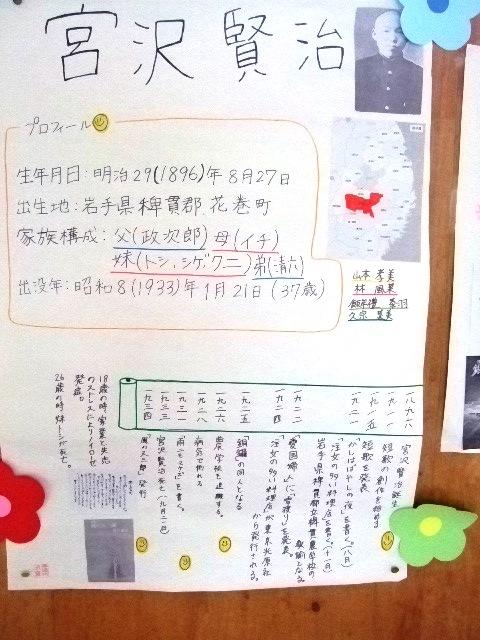 宮沢 賢治
プロフィール
生年月日:明治29(1896)年8月27日
出生地:岩手県稗貫郡 花巻町
家族構成:父(政次郎) 母(イチ)
妹(トシ、シゲ、クニ) 弟(清六)
出没年:昭和8(1933)年1月21日(37歳)
山本 孝美
林 風菓
久宗 星美
一八九六
一九一一
一九一五
一九二一
一九二二
一九二四
一九二五
一九二六
一九二八
一九三一
一九三三
一九三四
宮沢賢治誕生
短歌の創作を始める
短歌を発表
「かしはばやしの夜」を書く。(八月)
「注文の多い料理店」を書く。(十一月)
岩手県稗貫郡立稗貫農学校の
教師となる
「愛国婦人」に「雪渡り」を発表。
「注文の多い料理店」が東京光原社
から発行される。
銅鑼の同人となる
農学校を退職する。
病気で倒れる
「雨ニモマケズ」を書く。
宮沢賢治死亡
「風の又三郎」発行
18歳の時 家業と失恋
のストレスによりノイローゼ
発症。
26歳の時 妹トシが死亡。